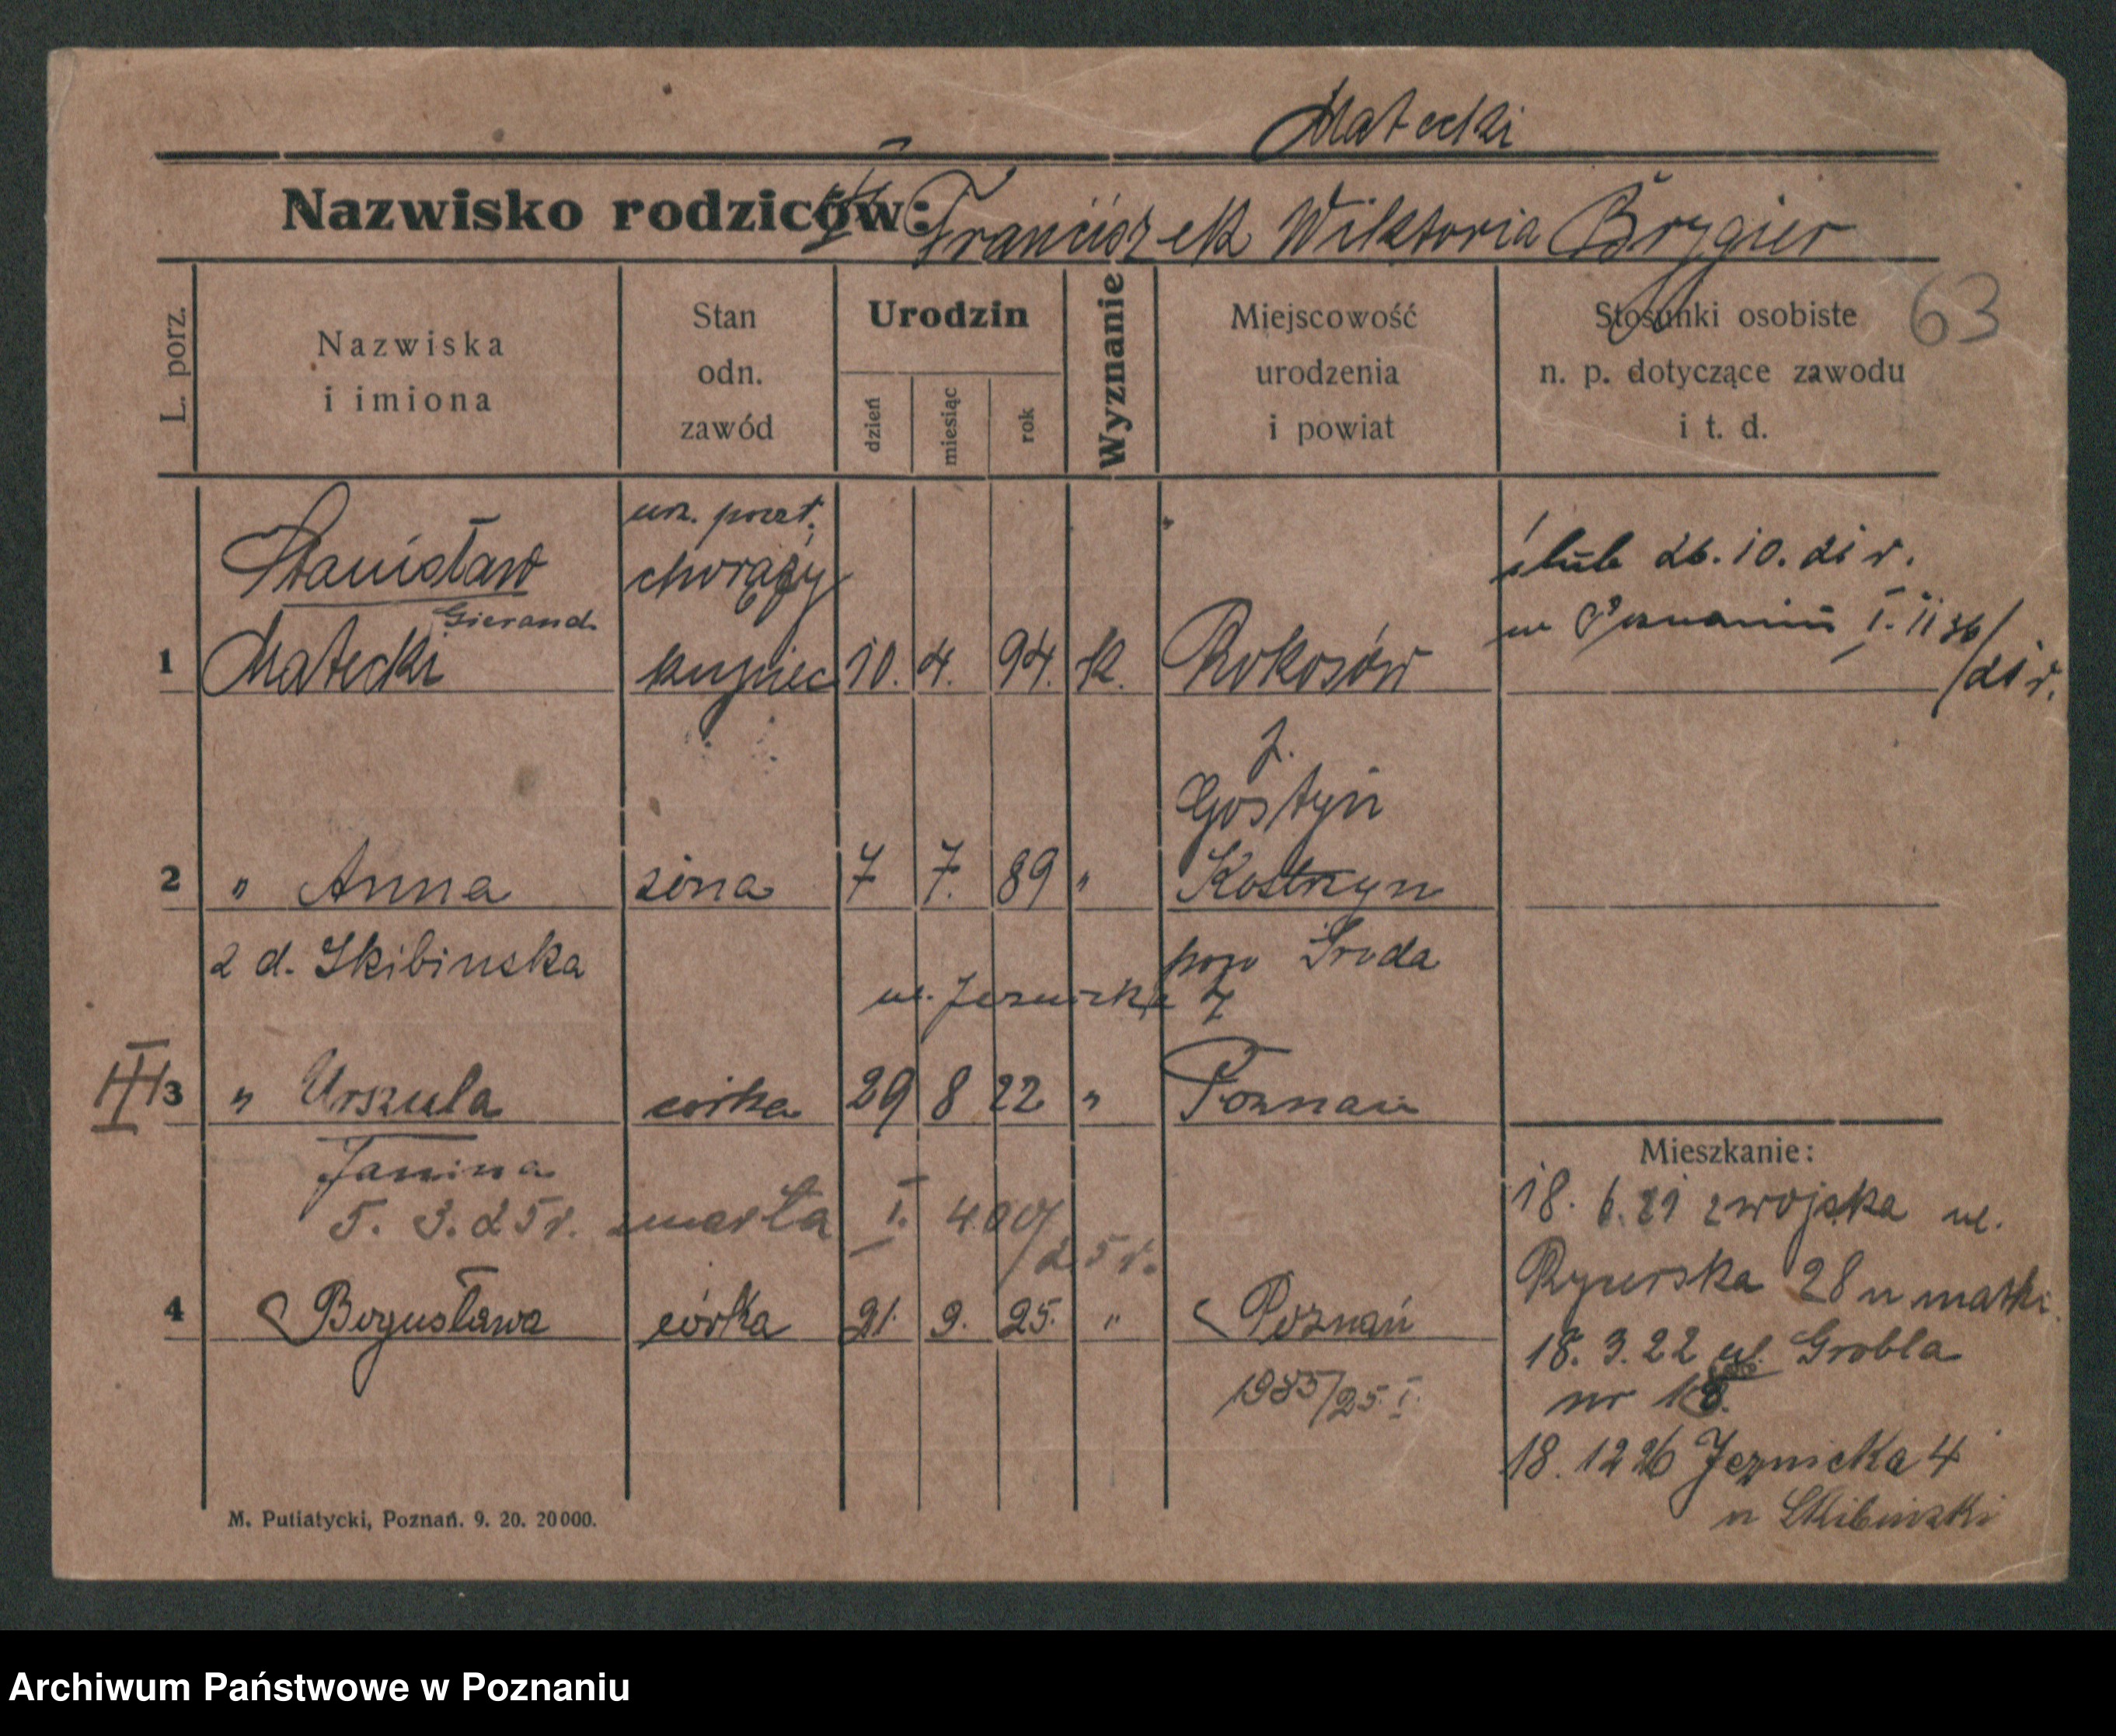 Małecki
Nazwisko rodziców: Franciszek Wiktoria Brygier
63
L. porz.
Nazwiska
i imiona
Stan
odn.
zawód
Urodzin
dzień
miesiąc
rok
Wyznanie
Miejscowość
urodzenia
i powiat
Stosunki osobiste
n. p. dotyczące zawodu
i t. d.
urz. poczt.
Stanisław chorąży ślub 26. 10. 21 r.
Gierand w Poznaniu I. 1136/21 r.
1 Małecki kupiec 10. 4. 94. K. Rokosów
p.
Gostyń
2 " Anna żona 7 7. 89 " Kostrzyn
z d. Skibinska pow Środa
ul. Jeznicka 7
III 3 " Urszula córka 29 8 22 " Poznań
Janina
5. 3. 25 r. zmarła I. 400/25 r.
4 Bogusława córka 21. 9. 25. " Poznań
1985/25 I.
Mieszkanie:
18. 6. 21 z wojska ul.
Rycerska 28 u matki
18. 3. 22 ul. Grobla
nr
18. 12 26 Jeznicka 4
u Skibinski
M. Putiatycki, Poznań. 9. 20. 20000.
Archiwum Państwowe w Poznaniu